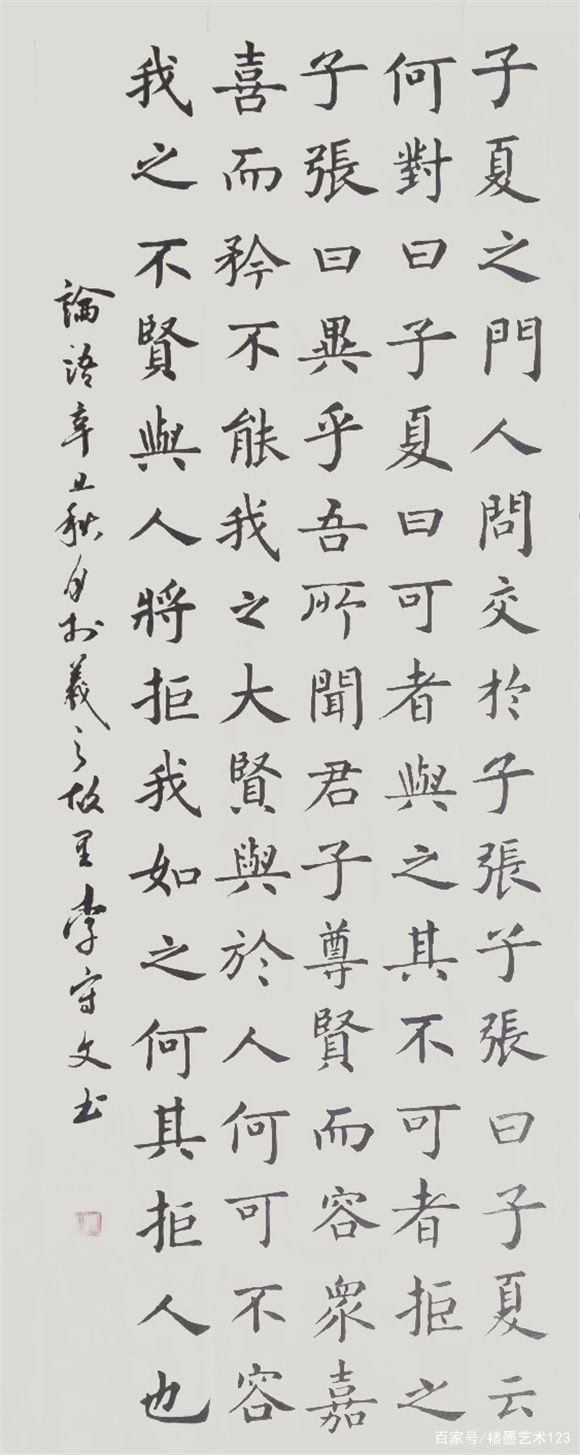 子夏之門人問交於子張子張曰子夏云
何對曰子夏曰可者與之其不可者拒之
子張曰異乎吾所聞君子尊賢而容衆嘉
喜而矜不能我之大賢與於人何可不容
我之不賢與人將拒我如之何其拒人也
論語辛丑秋月於羲之故里李守文书
百家号/楮墨艺术123